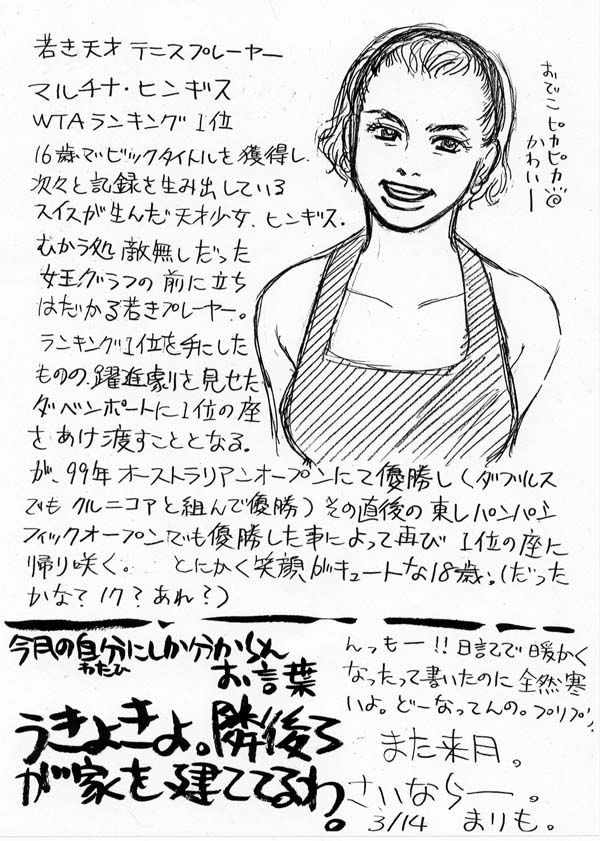 若き天才 テニスプレーヤー
マルチナ・ヒンギス
WTAランキング1位
16歳でビックタイトルを獲得し、
次々と記録を生み出している
スイスが生んだ天才少女、ヒンギス。
むかう処 敵無しだった
女王グラフの前に立ち
はだかる若きプレーヤー。
ランキング1位を手にした
ものの、躍進劇を見せた
ダベンポートに1位の座
をあけ渡すこととなる。
が、99年 オーストラリアンオープンにて優勝し(ダブルス
でも クルニコアと組んで優勝)その直後の 東レパンパシ
フィックオープンでも優勝した事によって再び 1位の座に
帰り咲く。 とにかく笑顔がキュートな18歳。(だった
かな?17?あれ?)
おでこ ピカピカ
かわいー
今月の自分にしか分からん
わたひ
お言葉
うきょきょ。隣後ろ
が家を建ててるわ。
んっもー!!日誌で暖かく
なったって書いたのに全然寒
いよ。どーなってんの。プリプリ
また来月。
さいならー。
3/14 まりも。